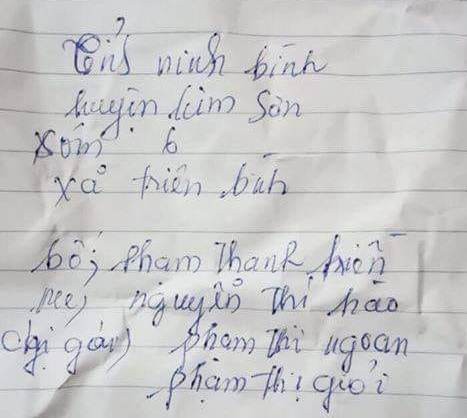 tỉnh ninh bình
huyện kim Sơn
xóm 6
xã triên bình
bố; phạm Thanh hiên
mẹ; nguyễn Thị hào
chị gái) phạm Thị ngoan
phạm thị giỏi